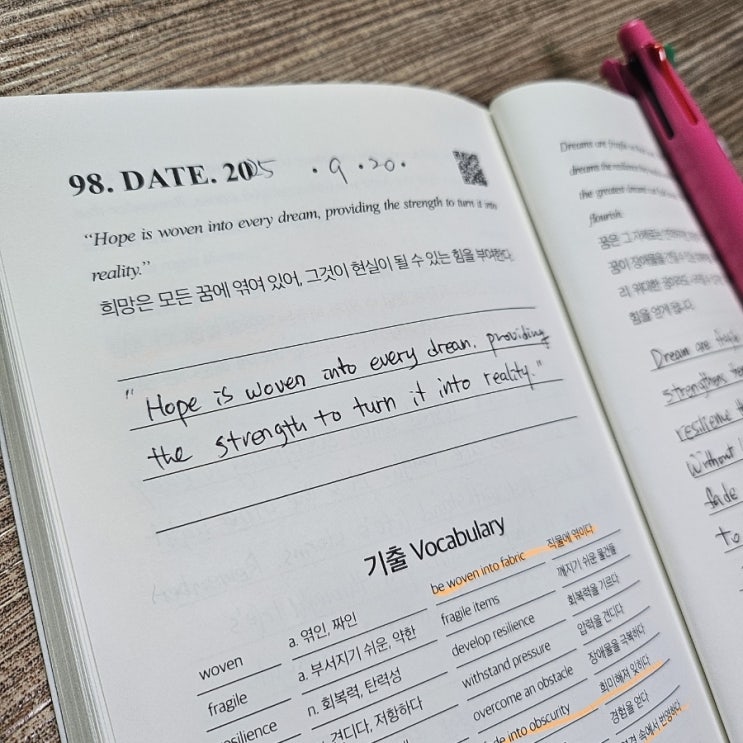 98. DATE. 2025 . 9 . 20 .
“Hope is woven into every dream, providing the strength to turn it into
reality.”
희망은 모든 꿈에 엮여 있어, 그것이 현실이 될 수 있는 힘을 부여한다.
" Hope is woven into every dream. providing
the strength to turn it into reality."
기출 Vocabulary
woven a. 엮인, 짜인 be woven into fabric 직물에 엮이다
fragile a. 부서지기 쉬운, 약한 fragile items 깨지기 쉬운 물건들
n. 회복력, 탄력성 develop resilience 회복력을 기르다
견디다, 저항하다 withstand pressure 압력을 견디다
overcome an obstacle 장애물을 극복하다
into obscurity 희미해져 잊히다
경험을 얻다
속에서 번영하다
Dreams are fragile
dreams the resilience
the greatest dream
flourish.
꿈은 그 자체로는
꿈이 장애물을
힘을 얻게 된다.
Dream are fragile
strengthens
resilience
Without
fade
to